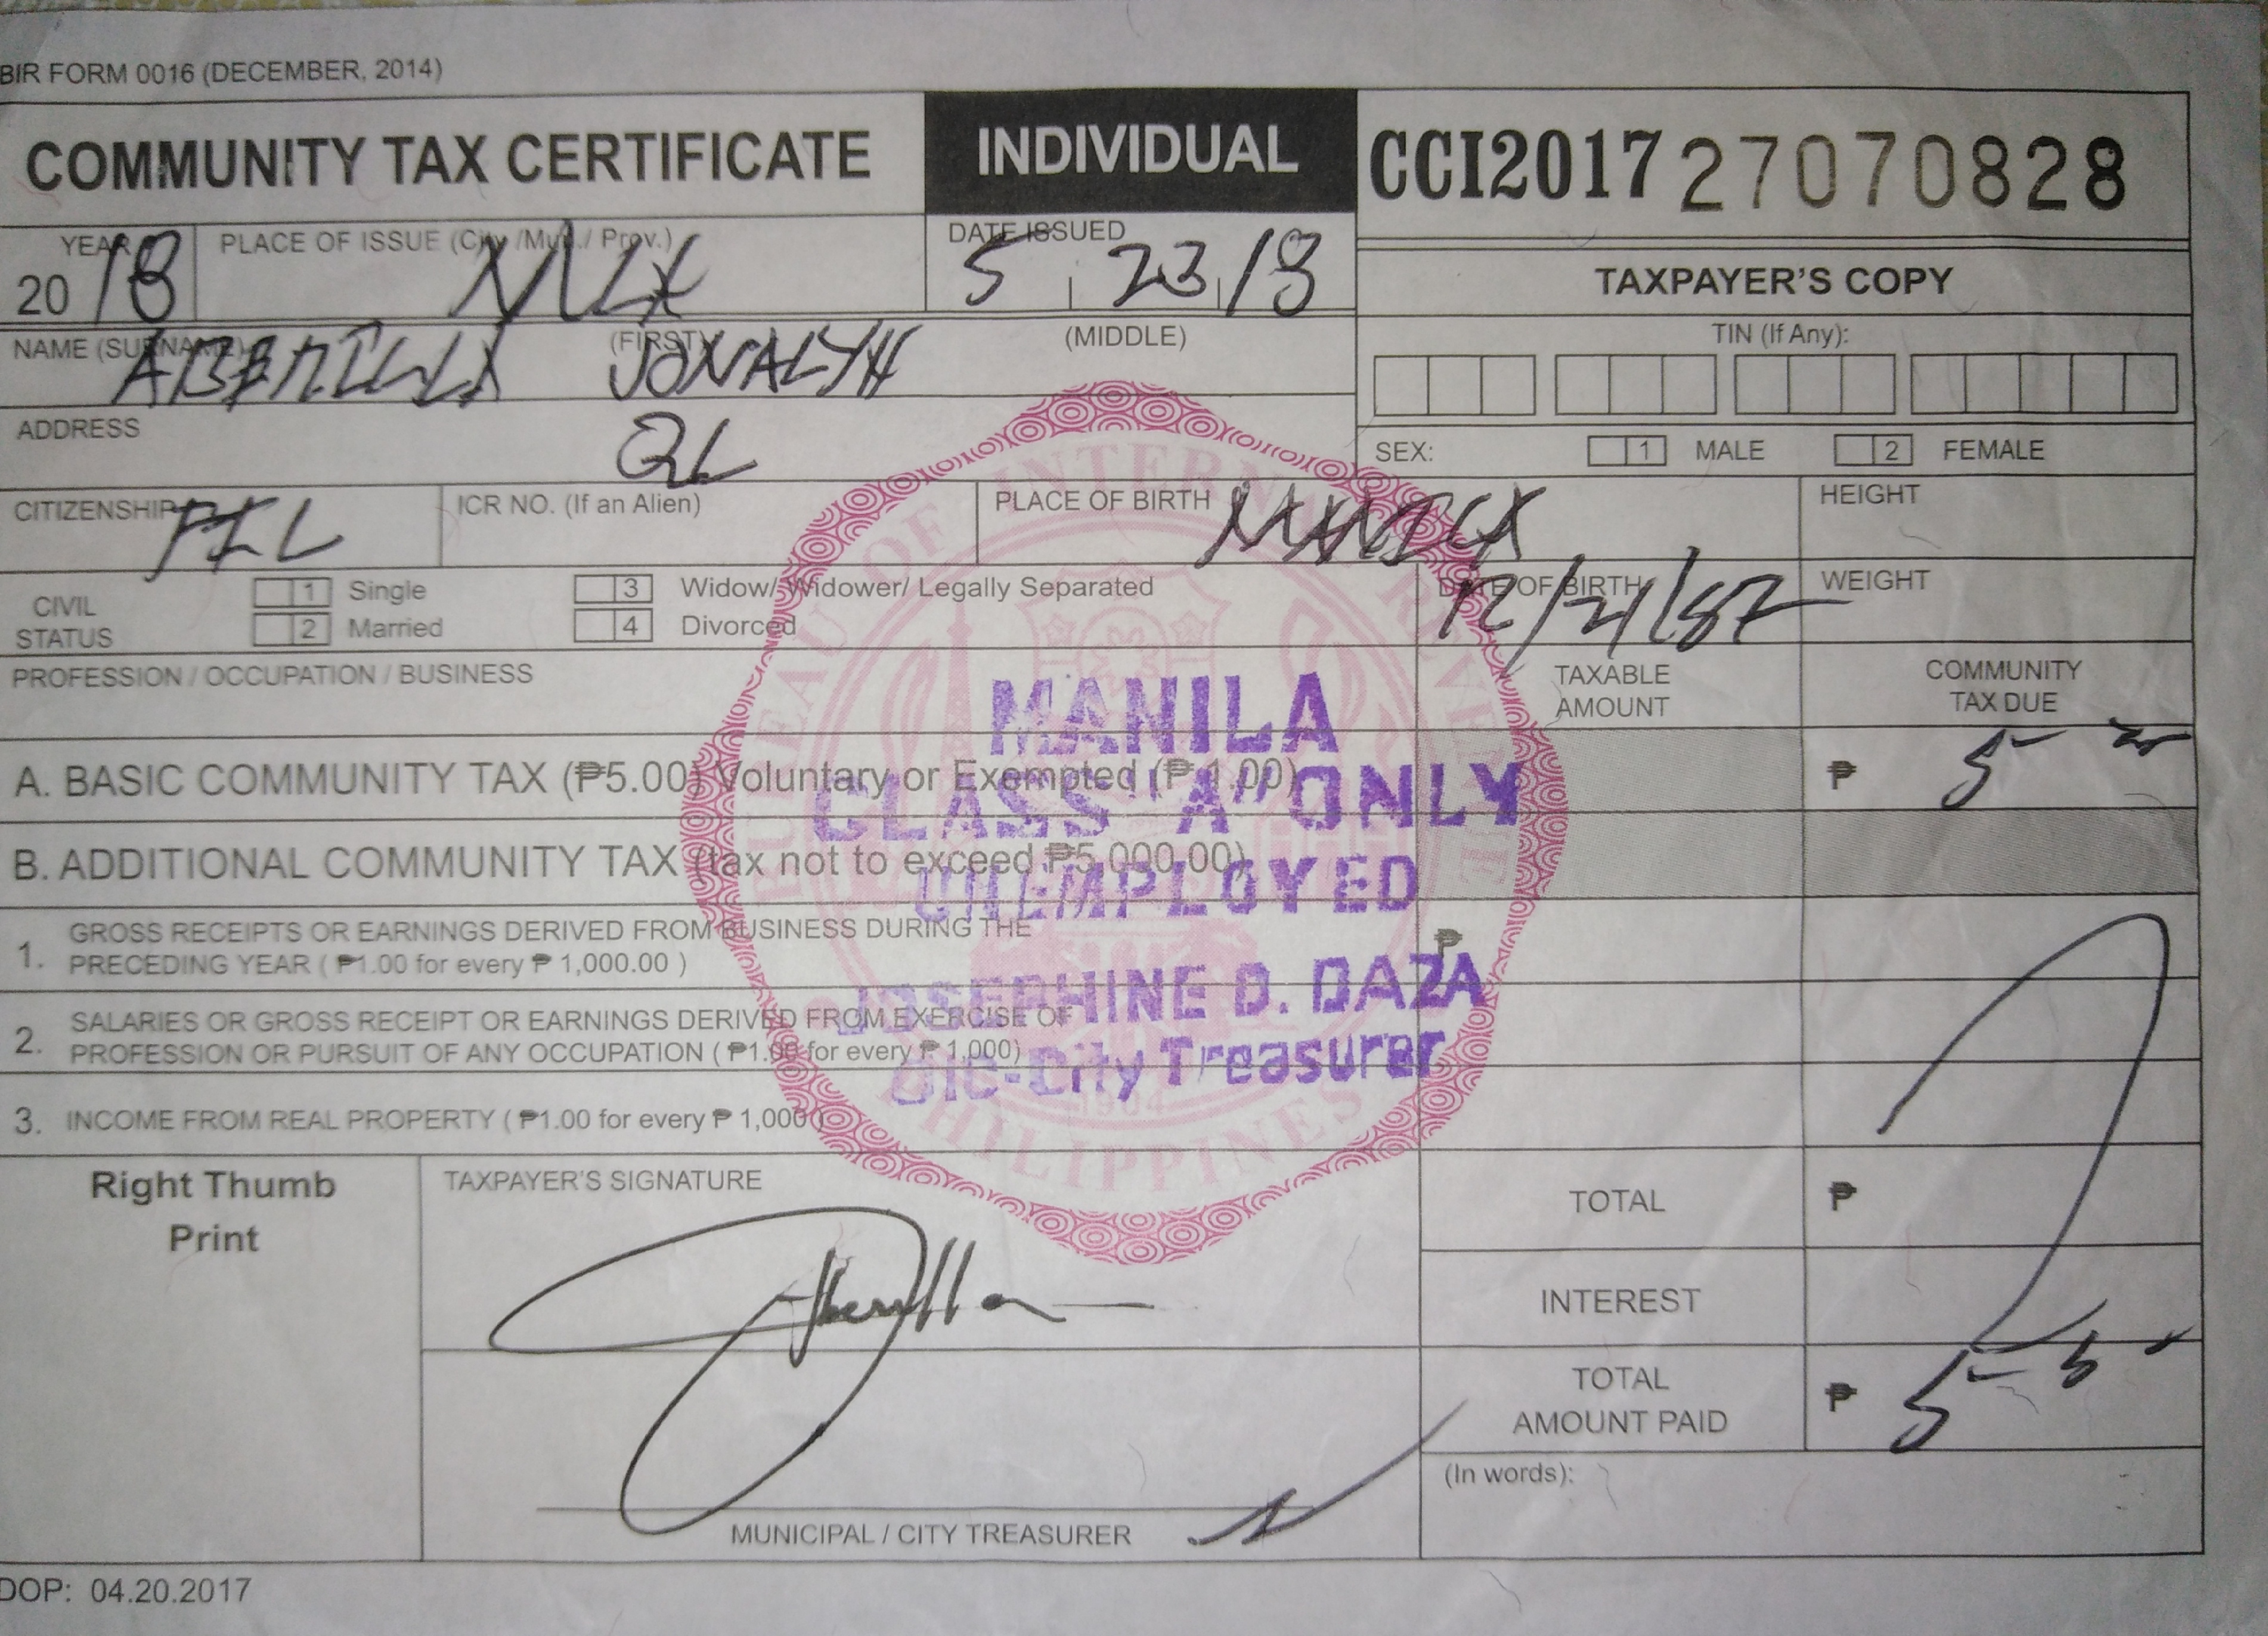 BIR FORM 0016 (DECEMBER, 2014)
COMMUNITY TAX CERTIFICATE
INDIVIDUAL
CCI2017 27070828
YEAR
2018
PLACE OF ISSUE (City /Mun./ Prov.)
MLA
DATE ISSUED
5 23/18
TAXPAYER'S COPY
NAME (SURNAME) (FIRST) (MIDDLE)
ABERILLA JONALYN
TIN (If Any):
ADDRESS
QC
SEX: 1 MALE 2 FEMALE
CITIZENSHIP
FIL
ICR NO. (If an Alien)
PLACE OF BIRTH
MANILA
HEIGHT
CIVIL STATUS
1 Single
2 Married
3 Widow/ Widower/ Legally Separated
4 Divorced
DATE OF BIRTH
12/21/87
WEIGHT
PROFESSION / OCCUPATION / BUSINESS
TAXABLE AMOUNT
COMMUNITY TAX DUE
A. BASIC COMMUNITY TAX (₱5.00) Voluntary or Exempted (₱ 1.00)
₱ 5-
B. ADDITIONAL COMMUNITY TAX (tax not to exceed ₱5,000.00)
1. GROSS RECEIPTS OR EARNINGS DERIVED FROM BUSINESS DURING THE
PRECEDING YEAR ( ₱1.00 for every ₱ 1,000.00 )
₱
2. SALARIES OR GROSS RECEIPT OR EARNINGS DERIVED FROM EXERCISE OF
PROFESSION OR PURSUIT OF ANY OCCUPATION ( ₱1.00 for every ₱ 1,000)
3. INCOME FROM REAL PROPERTY ( ₱1.00 for every ₱ 1,000)
BUREAU OF INTERNAL REVENUE
1904
PHILIPPINES
MANILA
CLASS "A" ONLY
UNEMPLOYED
JOSEPHINE D. DAZA
OIC-City Treasurer
Right Thumb
Print
TAXPAYER'S SIGNATURE
TOTAL ₱
INTEREST
TOTAL
AMOUNT PAID
₱ 5-
(In words):
MUNICIPAL / CITY TREASURER
DOP: 04.20.2017